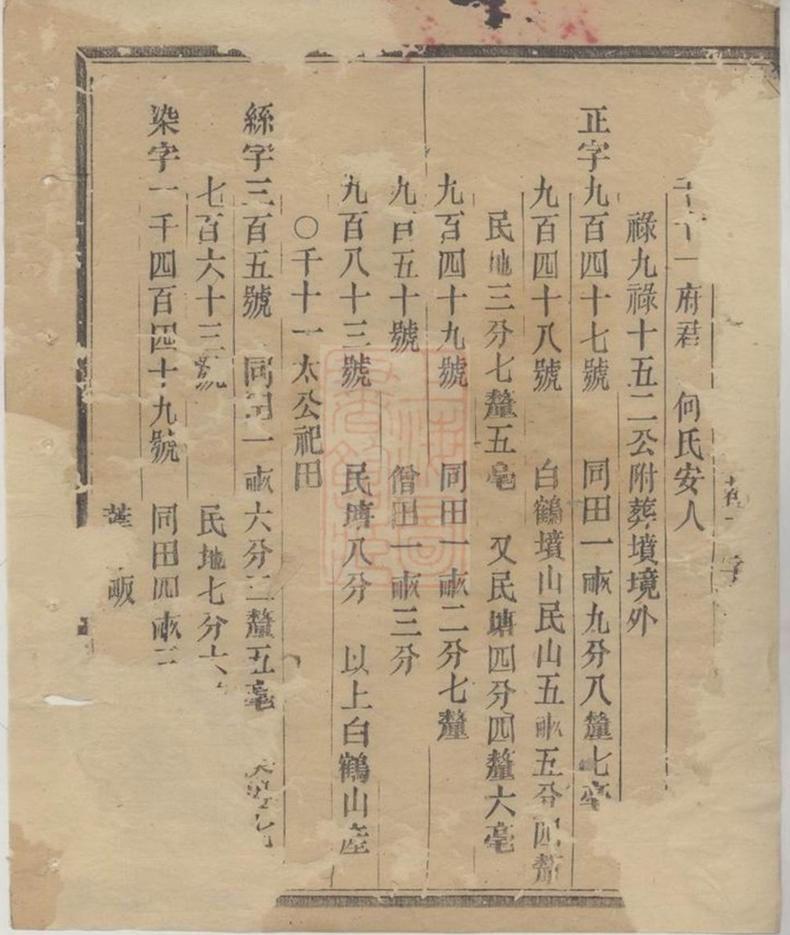 十一府君 何氏安人
祿九祿十五二公附葬墳境外
正字九百四十七號 同田一畝九分八釐七毫
九百四十八號 白鶴墳山民山五畝五分四釐
民地三分七釐五毫 又民塘四分四釐六毫
九百四十九號 同田一畝二分七釐
九百五十號 僧田一畝三分
九百八十三號 民塘八分 以上白鶴山產
○千十一太公祀田
絲字三百五號 同田一畝六分三釐五毫
七百六十三號 民地七分六
染字一千四百四十九號 同田四畝三
畈